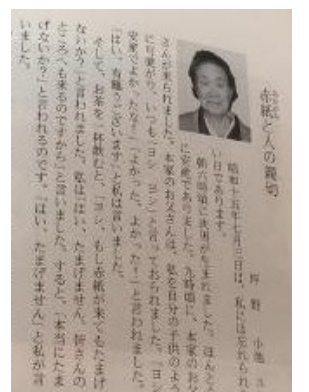 赤紙と人の親切
坪野 小池
昭和十五年七月三日は、私には忘れられ
い日であります。
朝六時頃に次男が生まれました。ほんとう
に安産でありました。九時頃に、本家のお父
さんが来られました。本家のお父さんは、私を自分の子供のよ
に可愛がり、いつも「ヨシ、ヨシ」と言っておられました。「ヨシ
安産でよかったな?」「よかった、よかった!」と言われました。
「はい、有難うございます」と私は言いました。
そして、お茶を一杯飲むと、「ヨシ、もし赤紙が来てもたまげ
ないか?」と言われました。私は「はい、たまげません。皆さんの
ところへも来るのですから」と言いました。すると、「本当にたま
げないか?」と言われるのです。「はい、たまげません」と私が言
いました。